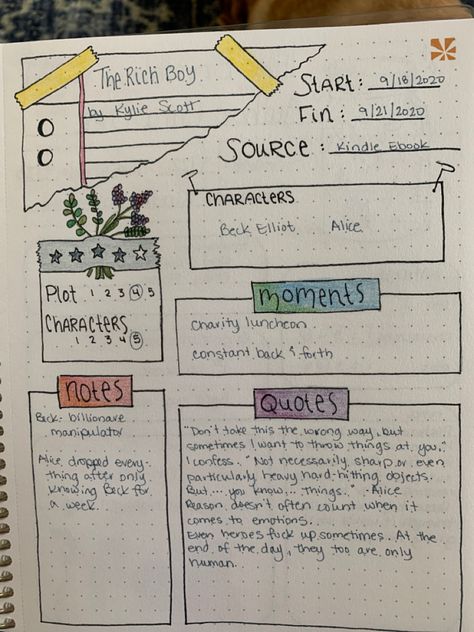 The Rich Boy
by Kylie Scott
Start: 9/18/2020
Fin: 9/21/2020
Source: Kindle Ebook
Characters
Beck Elliot Alice
Plot 1 2 3 4 5
Characters
1 2 3 4 5
moments
Charity luncheon
constant back & forth
notes
Beck- billionaire
manipulator
Alice dropped every-
thing after only
knowing Beck for
a week.
Quotes
"Don't take this the wrong way, but
sometimes I want to throw things at you,"
I confess. "Not necessarily sharp or even
particularly heavy hard-hitting objects.
But... you know... things." - Alice
Reason doesn't often count when it
comes to emotions.
Even heroes fuck up sometimes. At the
end of the day, they too are only
human.